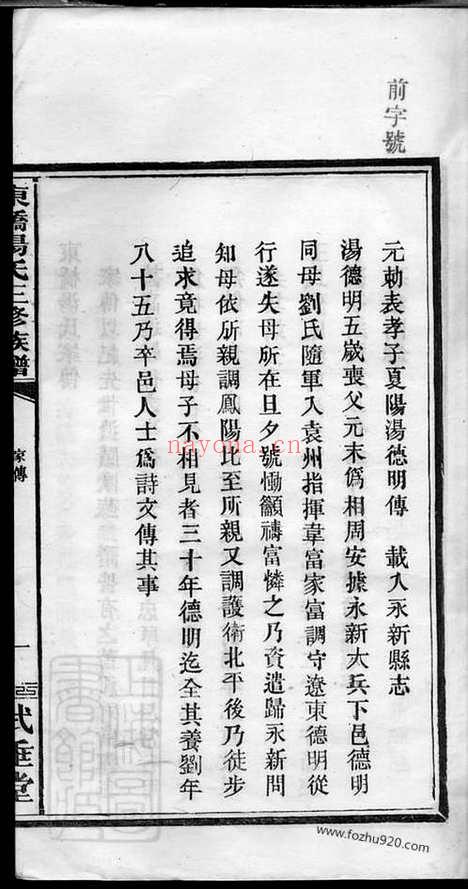 前字號
元勅表孝子夏陽湯德明傳　載入永新縣志
湯德明五歲喪父元末爲相周安據永新大兵下邑德明
同母劉氏隨軍入袁州指揮韋富家富調守遼東德明從
行遂失母所在旦夕號慟籲禱富憐之乃資遣歸永新問
知母依所親調鳳陽比至所親又調護衛北平後乃徒步
追求竟得焉母子不相見者三十年德明迄全其養劉年
八十五乃卒邑人士爲詩文傳其事
東橋湯氏三修族譜
家傳
一
式埀堂
nayona.cn
www.fozhu920.com